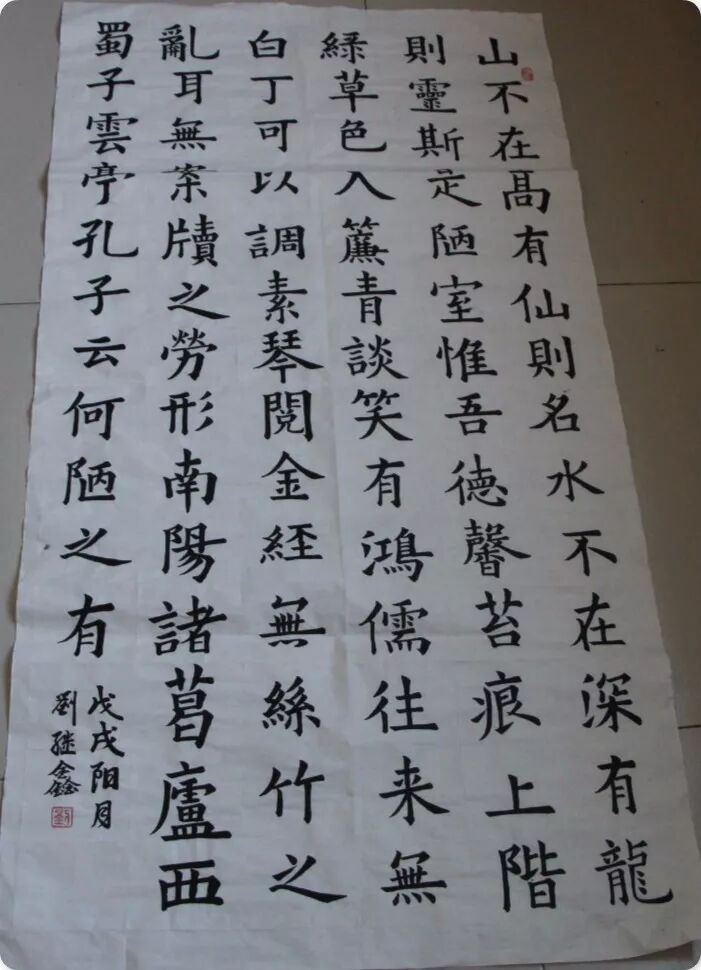 山不在髙有仙則名水不在深有龍
則靈斯是陋室惟吾德馨苔痕上階
緑草色入簾青談笑有鴻儒往来無
白丁可以調素琴閱金経無絲竹之
亂耳無案牘之勞形南陽諸葛廬西
蜀子雲亭孔子云何陋之有
戊戌阳月
劉继鑫